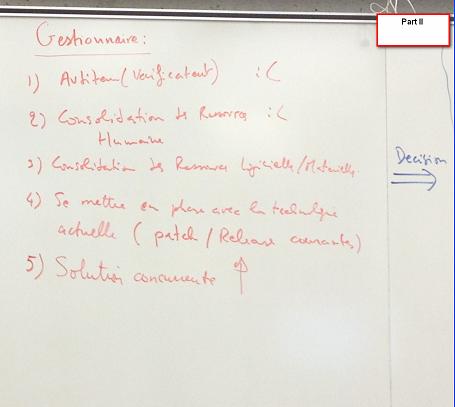 Part II
Gestionnaire :
1) Auditeur (Vérificateur) :(
2) Consolidation des Ressources :(
Humaine
3) Consolidation des Ressources Logicielle/Matérielle
4) Se mettre en phase avec la technologie
actuelle ( patch / Release courantes)
5) Solution concurrente ↑
Decision
⇒